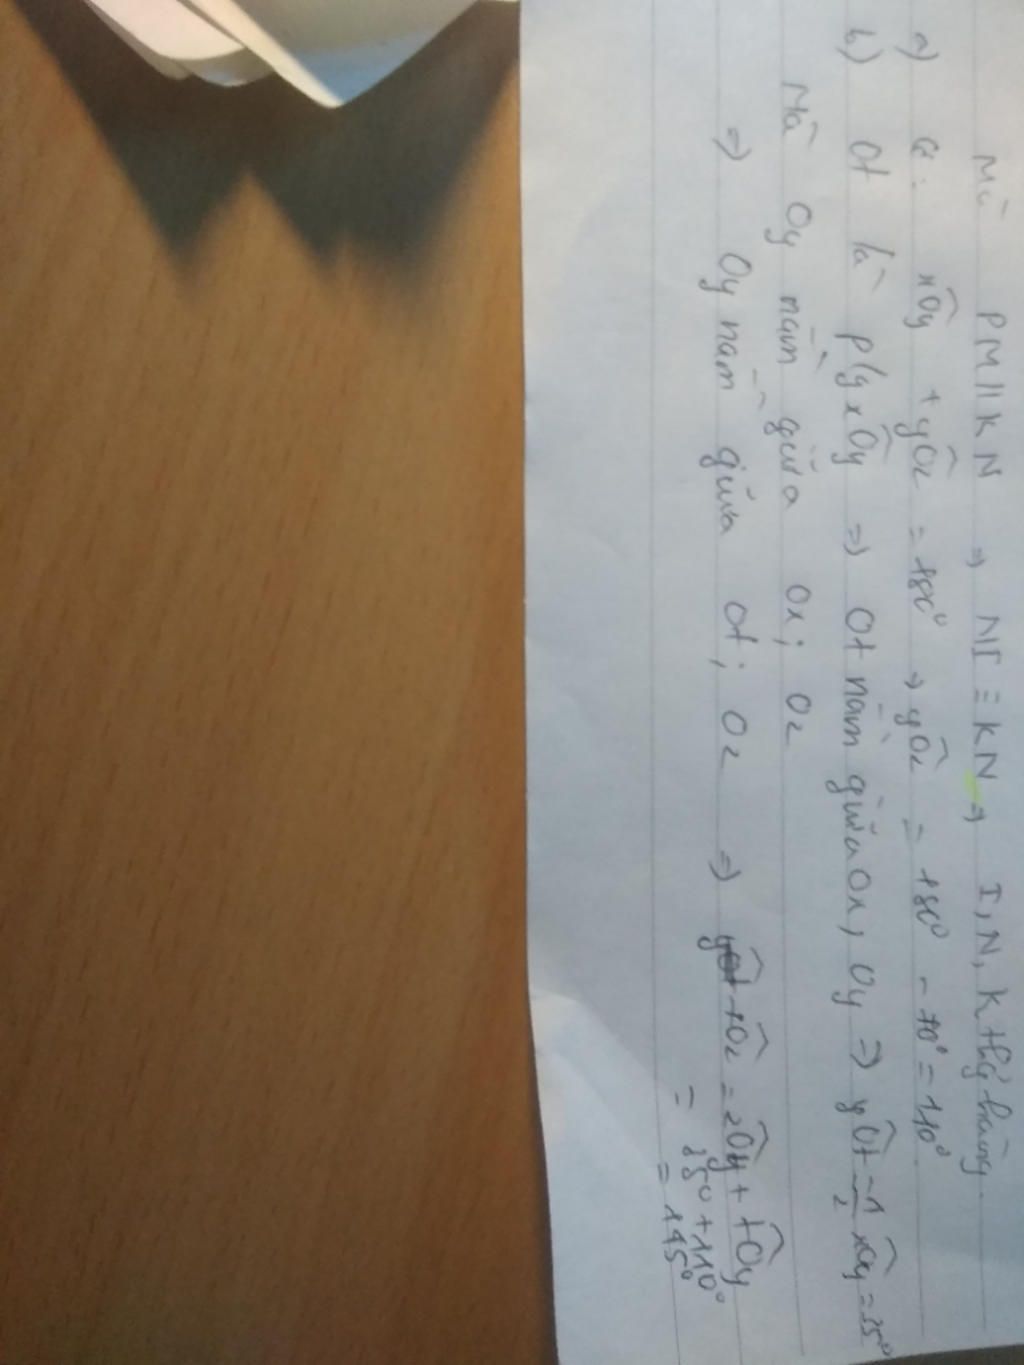 Mà PM // KN => NI ≡ KN => I, N, K thẳng hàng.
a) C: xOy + yOz = 180° => yOz = 180° - 70° = 110°
b) Ot là p/g xOy => Ot nằm giữa Ox, Oy => yOt = 1/2 xOy = 35°
Mà Oy nằm giữa Ox; Oz
=> Oy nằm giữa Ot; Oz => tOz = zOy + tOy
= 35° + 110°
= 145°